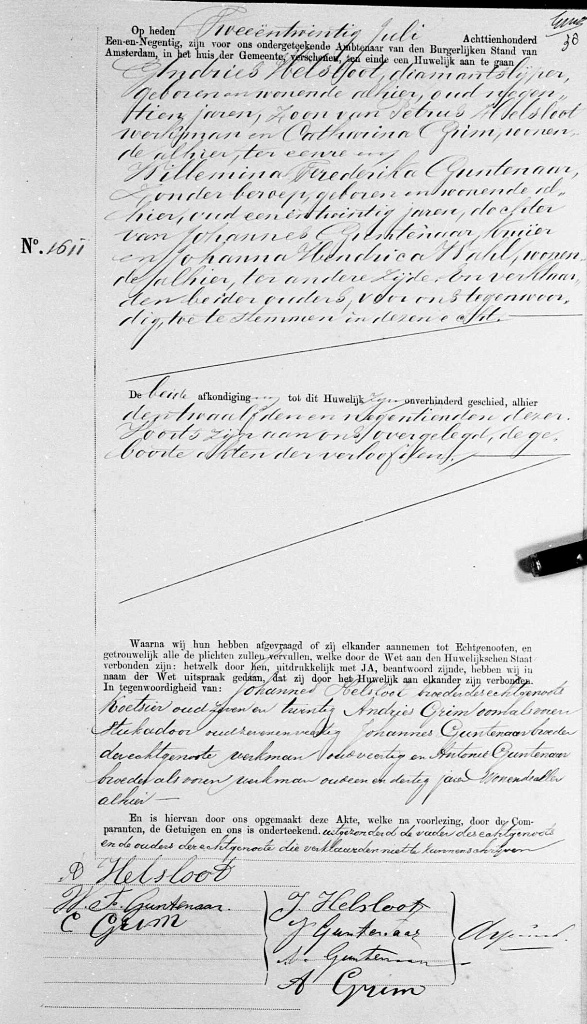 38
Op heden Tweeëntwintig Juli Achttienhonderd
Een-en-Negentig, zijn voor ons ondergeteekende Ambtenaar van den Burgerlijken Stand van
Amsterdam, in het huis der Gemeente, verschenen, ten einde een Huwelijk aan te gaan
Andries Helsloot, diamantslijper,
geboren en wonende alhier, oud negen-
tien jaren, Zoon van Petrus Helsloot
werkman en Catharina Grim, wonen-
de alhier, ter eenre en
Willemina Frederika Guntenaar,
zonder beroep, geboren en wonende al-
hier, oud eenëntwintig jaren, dochter
van Johannes Guntenaar, kruijer
No. 1611
en Johanna Hendrica Wahl, wonen-
de alhier, ter andere Zijde. En verklaar-
den beider ouders, voor ons tegenwoor-
dig, toe te stemmen in dezen echt.
De beide afkondigingen tot dit Huwelijk zijn onverhinderd geschied, alhier
den twaalfden en negentienden dezer.
Voorts zijn aan ons overgelegd, de ge-
boorte akten der verloofden.
Waarna wij hun hebben afgevraagd of zij elkander aannemen tot Echtgenooten, en
getrouwelijk alle de plichten zullen vervullen, welke door de Wet aan den Huwelijkschen Staat
verbonden zijn: hetwelk door hen, uitdrukkelijk met JA, beantwoord zijnde, hebben wij in
naam der Wet uitspraak gedaan, dat zij door het Huwelijk aan elkander zijn verbonden.
In tegenwoordigheid van: Johannes Helsloot broeder des echtgenoots
Koetsier oud zeven en twintig Andries Grim oom als voren
Stukadoor oud zevenenveertig Johannes Guntenaar broeder
der echtgenoote werkman oud veertig en Antonie Guntenaar
broeder als voren werkman oud een en dertig jaren Wonende allen
alhier
En is hiervan door ons opgemaakt deze Akte, welke na voorlezing, door de Com-
paranten, de Getuigen en ons is onderteekend. uitgezonderd de vader des echtgenoots
en de ouders der echtgenoote die verklaarden niet te kunnen schrijven
A Helsloot
W. F. Guntenaar.
C Grim
J Helsloot
J Guntenaar
A. Guntenaar
A Grim